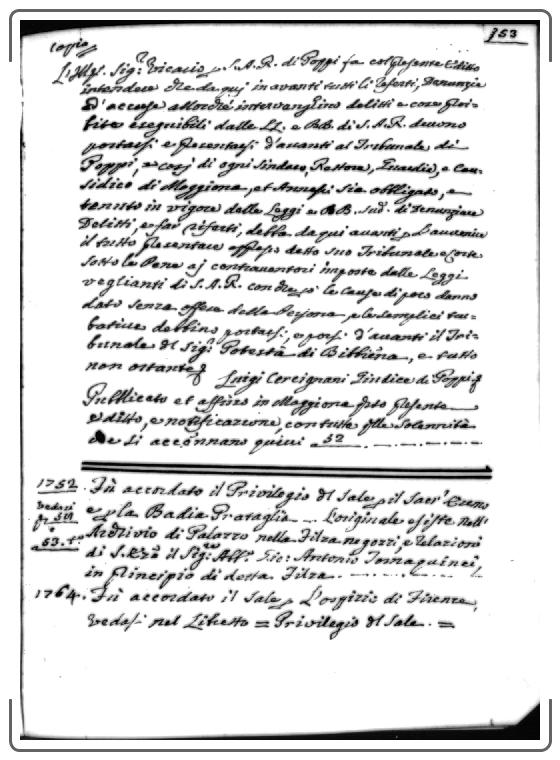 353
Coppia
L'Ill.mo Sig.r Vicario p. S.A.R. di Poppi fa col presente Editto
intendere che da qui in avanti tutti li referti, Denunzie
ed accuse allorchè intervenghino delitti e cose proi-
bite eseguibili dalle LL. e BB. di S.A.R. devono
portarsi e presentarsi d'avanti al Tribunale di
Poppi, e così di ogni Sindaco, Rettore, Guardie, e Cau-
sidico di Moggiona, et Annessi sia obbligato, e
tenuto in vigore delle Leggi e BB. Sud. di Denunziare
Delitti, e far referti, debba da qui avanti p. l'avvenire
il tutto presentare appresso detto suo Tribunale e Corte
sotto le Pene a i contraventori imposte dalle Leggi
veglianti di S.A.R. con che però le Cause di poco danno
dato senza offesa della Persona, e le semplici tur-
bative debbino portarsi, e porsi d'avanti il Tri-
bunale del Sig.r Potestà di Bibbiena, e tutto
non ostante
Luigi Cercignani Giudice di Poppi
Pubblicato et affisso in Moggiona sito presente
Editto, e notificazione, con tutte q.lle Solennità
che si accennano quivi 52
1752. Fù accordato il Privilegio del Sale p. il Sacr. Eremo
vedasi e p. la Badia Prataglia L'originale esiste nell'
Archivio di Palazzo nella Filza negozzi, e relazioni
53. t.o di S. il Sig.re Aud. Gio: Antonio Tornaquinci,
in principio di detta Filza
1764. Fù accordato il Sale p. L'ospizio di Firenze,
vedasi nel Libretto = Privilegio del Sale. =